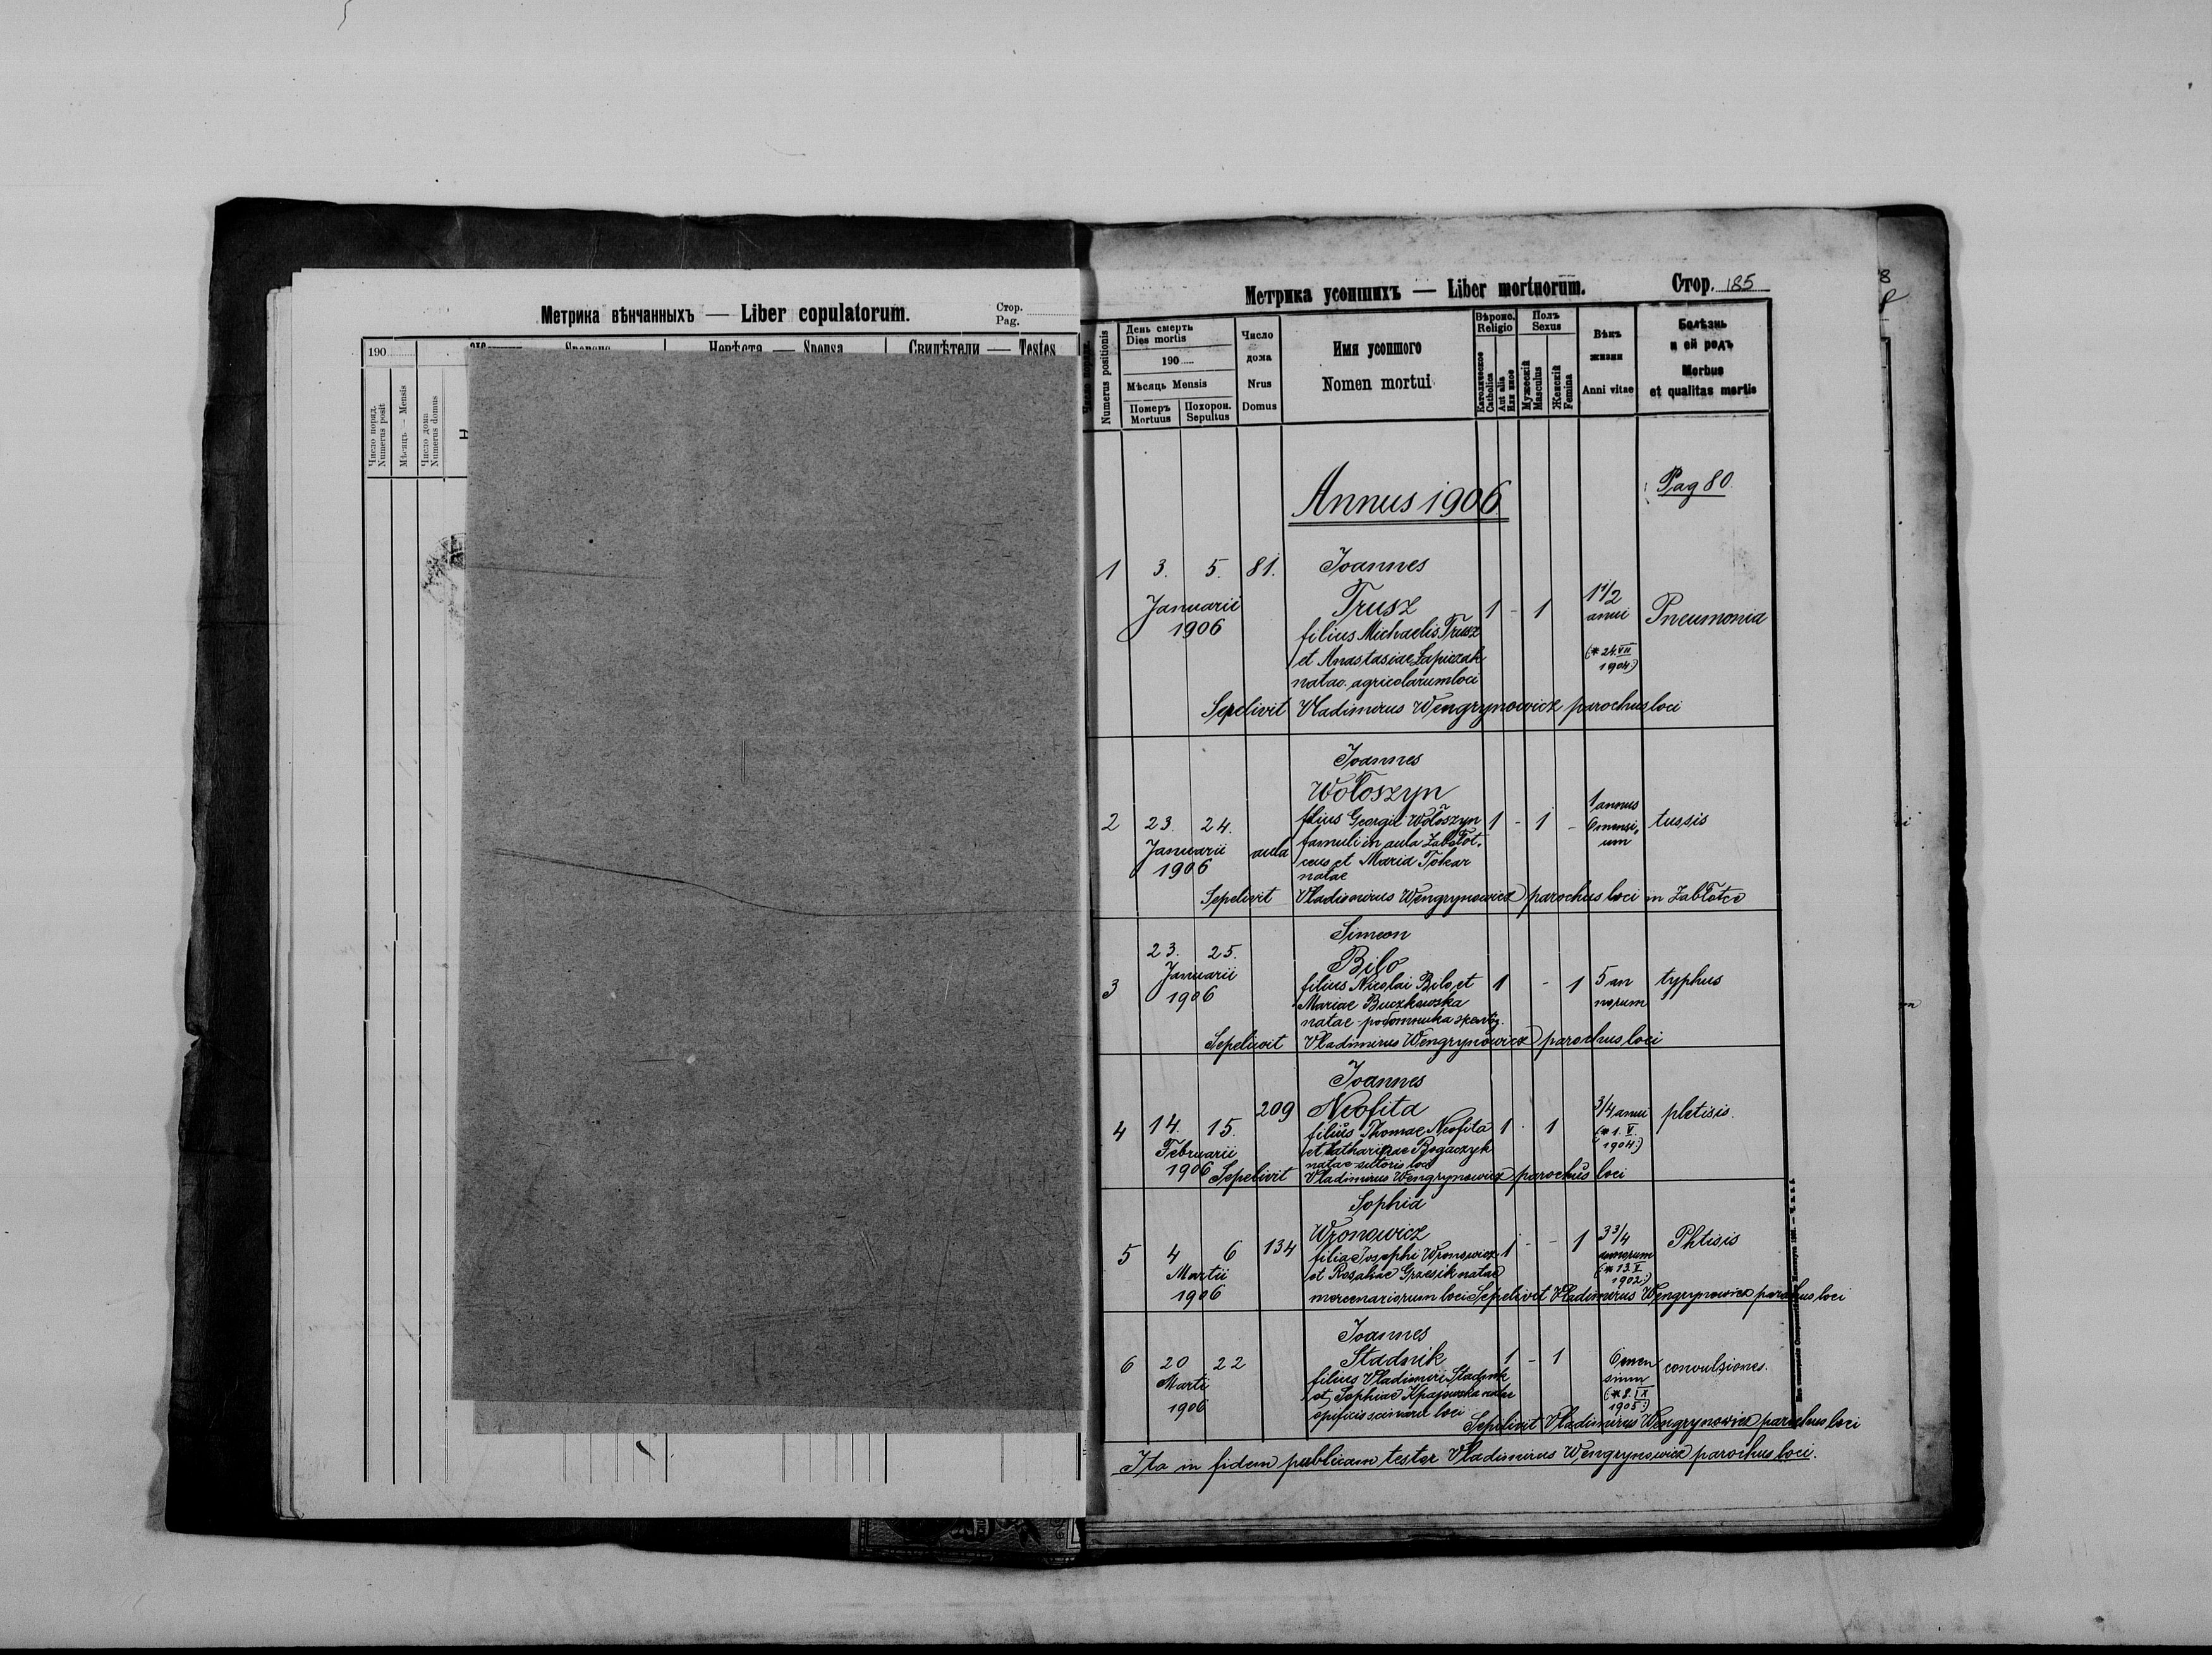 Метрика вѣнчанныхъ — Liber copulatorum.
Стор.
Pag.
190
Невѣста — Sponsa
Свидѣтели — Testes
Число поряд.
Numerus posit
Мѣсяць — Mensis
Число дома
Numerus domus
Метрика усопшихъ — Liber mortuorum.
Стор. 185
Numerus positionis
День смерть
Dies mortis
190
Мѣсяць Mensis
Померъ
Mortuus
Похорон.
Sepultus
Число
дома
Nrus
Domus
Имя усопшого
Nomen mortui
Вѣроис.
Religio
Католическое
Catholica
Aut alia
Или иное
Полъ
Sexus
Мужескій
Masculus
Женскій
Femina
Вѣкъ
жизни
Anni vitae
Болѣзнь
и ей родъ
Morbus
et qualitas mortis
Annus 1906
Pag 80.
1 3. 5. 81. Joannes
Januarii Trusz 1 - 1 1 1/2 Pneumonia
1906 filius Michaelis Trusz anni
et Anastasiae Łapiczak (* 24.VII
natae agricolarum loci 1904)
Sepelivit Vladimirus Wengrynowicz parochus loci
Joannes
Wołoszyn
2 23. 24. filius Georgii Wołoszyn 1 - 1 - 1 annus tussis
Januarii aula famuli in aula Zabłot. 6 mensi,
1906 et Maria Tokar um
natae
Sepelivit Vladimirus Wengrynowicz parochus loci in Zabłotce
Simeon
23. 25. Bilo
3 Januarii filius Nicolai Bilo et 1 - 1 5 an typhus
1906 Mariae Buczkowska norum
natae роботника
Sepelivit Vladimirus Wengrynowicz parochus loci
Joannes
209 Neofita
4 14. 15. filius Thomae Neofita 1 . 1 3/4 anni phtisis.
Februarii et Katharinae Bogaczyk (* 1. V.
1906 natae sutoris loci 1904.)
Sepelivit Vladimirus Wengrynowicz parochus loci
Sophia
Wronowicz
5 4 6 134 filia Josephi Wronowicz 1 - - 1 3 3/4 Phtisis
Martii et Rosaliae Grzesik natae annorum
1906 (* 13.
1902.)
mercenariorum loci Sepelivit Vladimirus Wengrynowicz parochus loci
Joannes
6 20 22 Stadnik 1 - 1 6 men convulsiones.
Marti filius Vladimiri Stadnik sium
1906 et Sophiae natae (* 8. IX
opificis loci 1905.)
Sepelivit Vladimirus Wengrynowicz parochus loci
Ita in fidem publicam testor Vladimirus Wengrynowicz parochus loci.